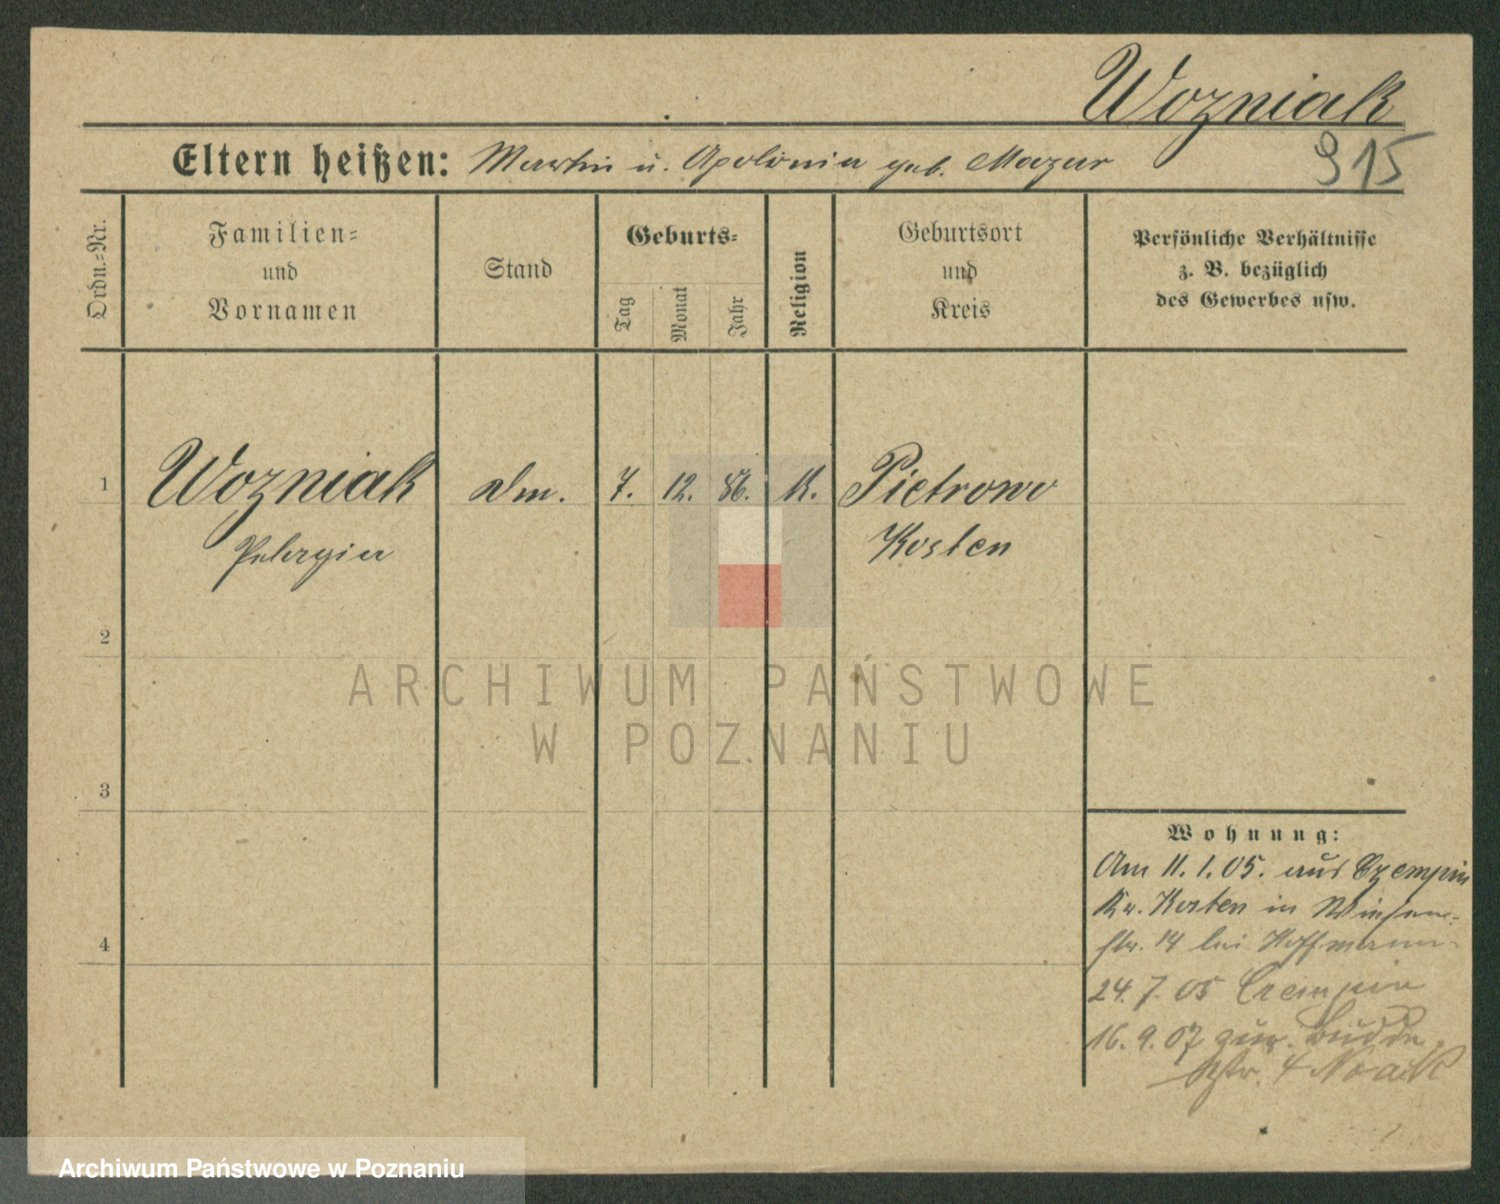 Wozniak
915
Eltern heißen: Martin u. Apolonia geb. Mazur
Ordn.-Nr.
Familien-
und
Vornamen
Stand
Geburts-
Tag
Monat
Jahr
Religion
Geburtsort
und
Kreis
Persönliche Verhältnisse
z. B. bezüglich
des Gewerbes usw.
1 Wozniak 7. 12. 86. K. Pietrowo
Pelagia Kosten
2
3
4
Wohnung:
Am 11. 1. 05. aus Czempin
Kr. Kosten in Wiesen-
str. 14 bei Hoffmann
24. 7. 05 Czempin
16. 9. 07 zur. Budde
str. 4 Noack
ARCHIWUM PAŃSTWOWE
W POZNANIU
Archiwum Państwowe w Poznaniu